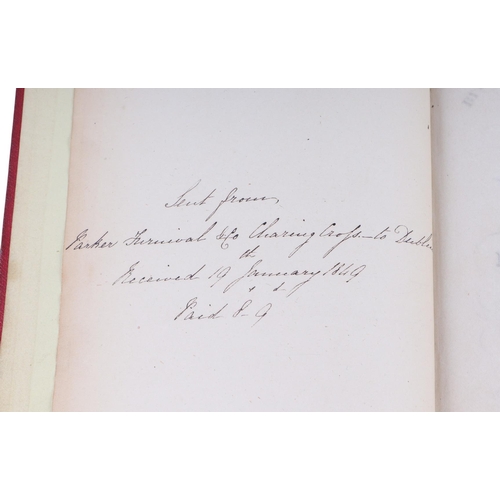 Sent from
Parker Furnival & Co Charing Cross – to Dublin
Received 19th January 1849
Paid 8s 9d